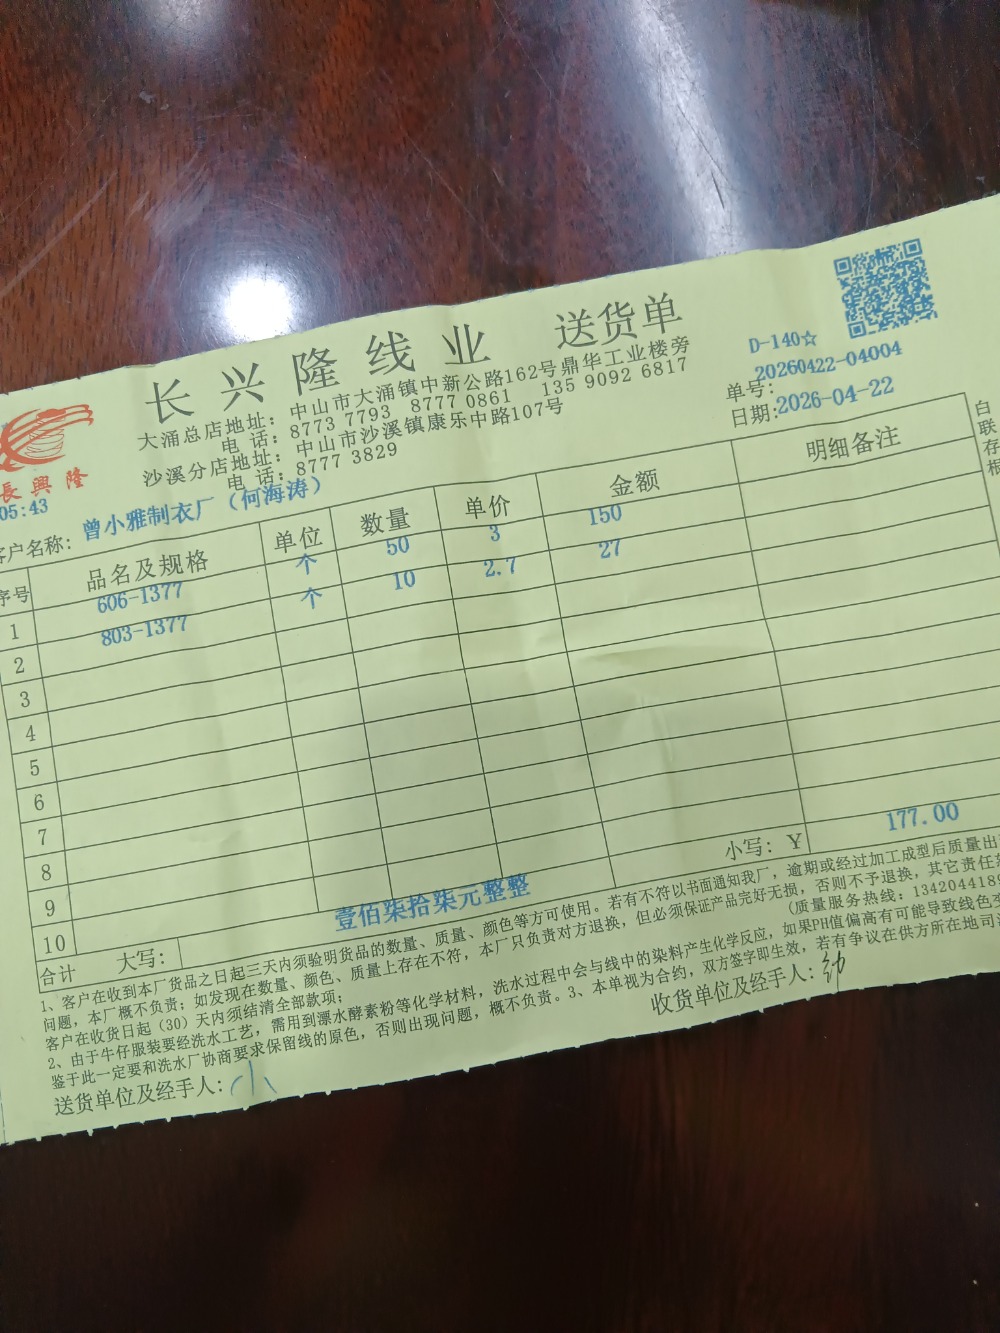 长兴隆线业 送货单
D-140☆
大涌总店地址：中山市大涌镇中新公路162号鼎华工业楼旁
电 话：8773 7793 8777 0861 135 9092 6817
沙溪分店地址：中山市沙溪镇康乐中路107号
电 话：8777 3829
单号：20260422-04004
日期：2026-04-22
長興隆
05:43
客户名称：曾小雅制衣厂（何海涛）
白联存根
序号 品名及规格 单位 数量 单价 金额 明细备注
1 606-1377 个 50 3 150
2 803-1377 个 10 2.7 27
3
4
5
6
7
8
9
10
合计 大写：壹佰柒拾柒元整整 小写：￥ 177.00
1、客户在收到本厂货品之日起三天内须验明货品的数量、质量、颜色等方可使用。若有不符以书面通知我厂，逾期或经过加工成型后质量出
问题，本厂概不负责；如发现在数量、颜色、质量上存在不符，本厂只负责对方退换，但必须保证产品完好无损，否则不予退换，其它责任
客户在收货日起（30）天内须结清全部款项；（质量服务热线：1342044189
2、由于牛仔服装要经洗水工艺，需用到漂水酵素粉等化学材料，洗水过程中会与线中的染料产生化学反应，如果PH值偏高有可能导致线色变
鉴于此一定要和洗水厂协商要求保留线的原色，否则出现问题，概不负责。3、本单视为合约，双方签字即生效，若有争议在供方所在地司
送货单位及经手人：小 收货单位及经手人：